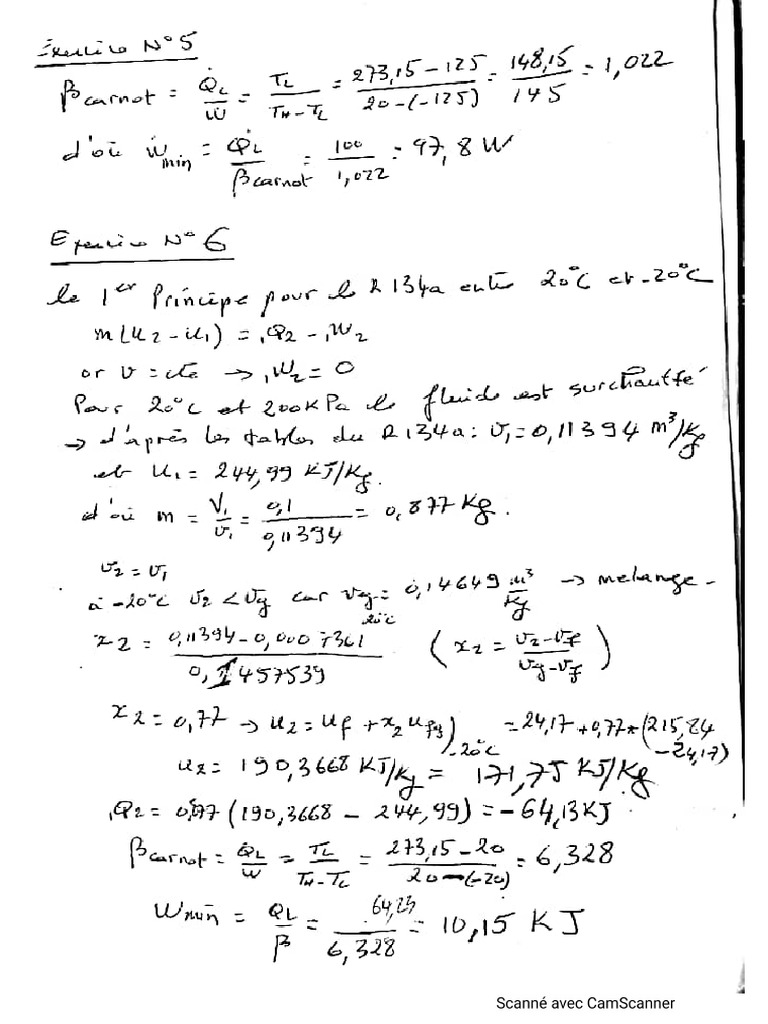 Exercice N°5
βcarnot = Q̇L/Ẇ = TL/(TH-TL) = (273,15-125)/(20-(-125)) = 148,15/145 = 1,022
d'où Ẇmin = Q̇L/βcarnot = 100/1,022 = 97,8 W
Exercice N°6
le 1er Principe pour le R134a entre 20°C et -20°C
m(u2-u1) = 1Q2 - 1W2
or V = cte → 1W2 = 0
Pour 20°C et 200KPa le fluide est surchauffé
→ d'après les tables du R134a: v1 = 0,11394 m³/Kg
et u1 = 244,99 KJ/Kg.
d'où m = V1/v1 = 0,1/0,11394 = 0,877 Kg.
v2 = v1
à -20°C v2 < vg car vg-20°C = 0,14649 m³/Kg → melange-
x2 = (0,11394-0,0007361)/0,1457539 (x2 = (v2-vf)/(vg-vf))
x2 = 0,77 → u2 = uf + x2 ufg)-20°C = 24,17+0,77*(215,84-24,17)
u2 = 190,3668 KJ/Kg = 171,75 KJ/Kg
1Q2 = (190,3668 - 244,99) = -64,13KJ.
βcarnot = Q̇L/Ẇ = TL/(TH-TL) = (273,15-20)/(20-(-20)) = 6,328
Wmin = QL/β = 64,23/6,328 = 10,15 KJ
Scanné avec CamScanner